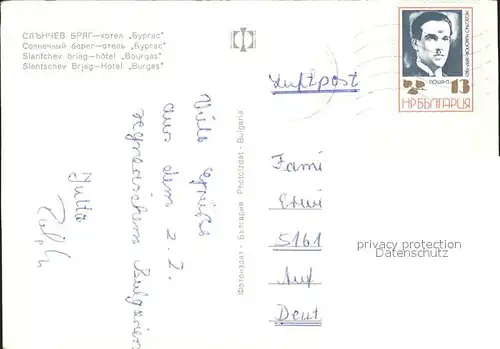 СЛЪНЧЕВ БРЯГ—хотел „Бургас"
Солнечный берег—отель „Бургас"
Slantchev briag—hôtel „Bourgas"
Slantschev Brjag—Hotel „Burgas"
Luftpost
ПОЩА
2 13
НРБЪЛГАРИЯ
Viele Grüße
aus dem z. Z.
regnerischem Bulgarien
Jutta
Ralph
Фотоиздат - България Photoizdat - Bulgaria
Fami
Erwi
5161
Auf
Deut
privacy protection
Datenschutz